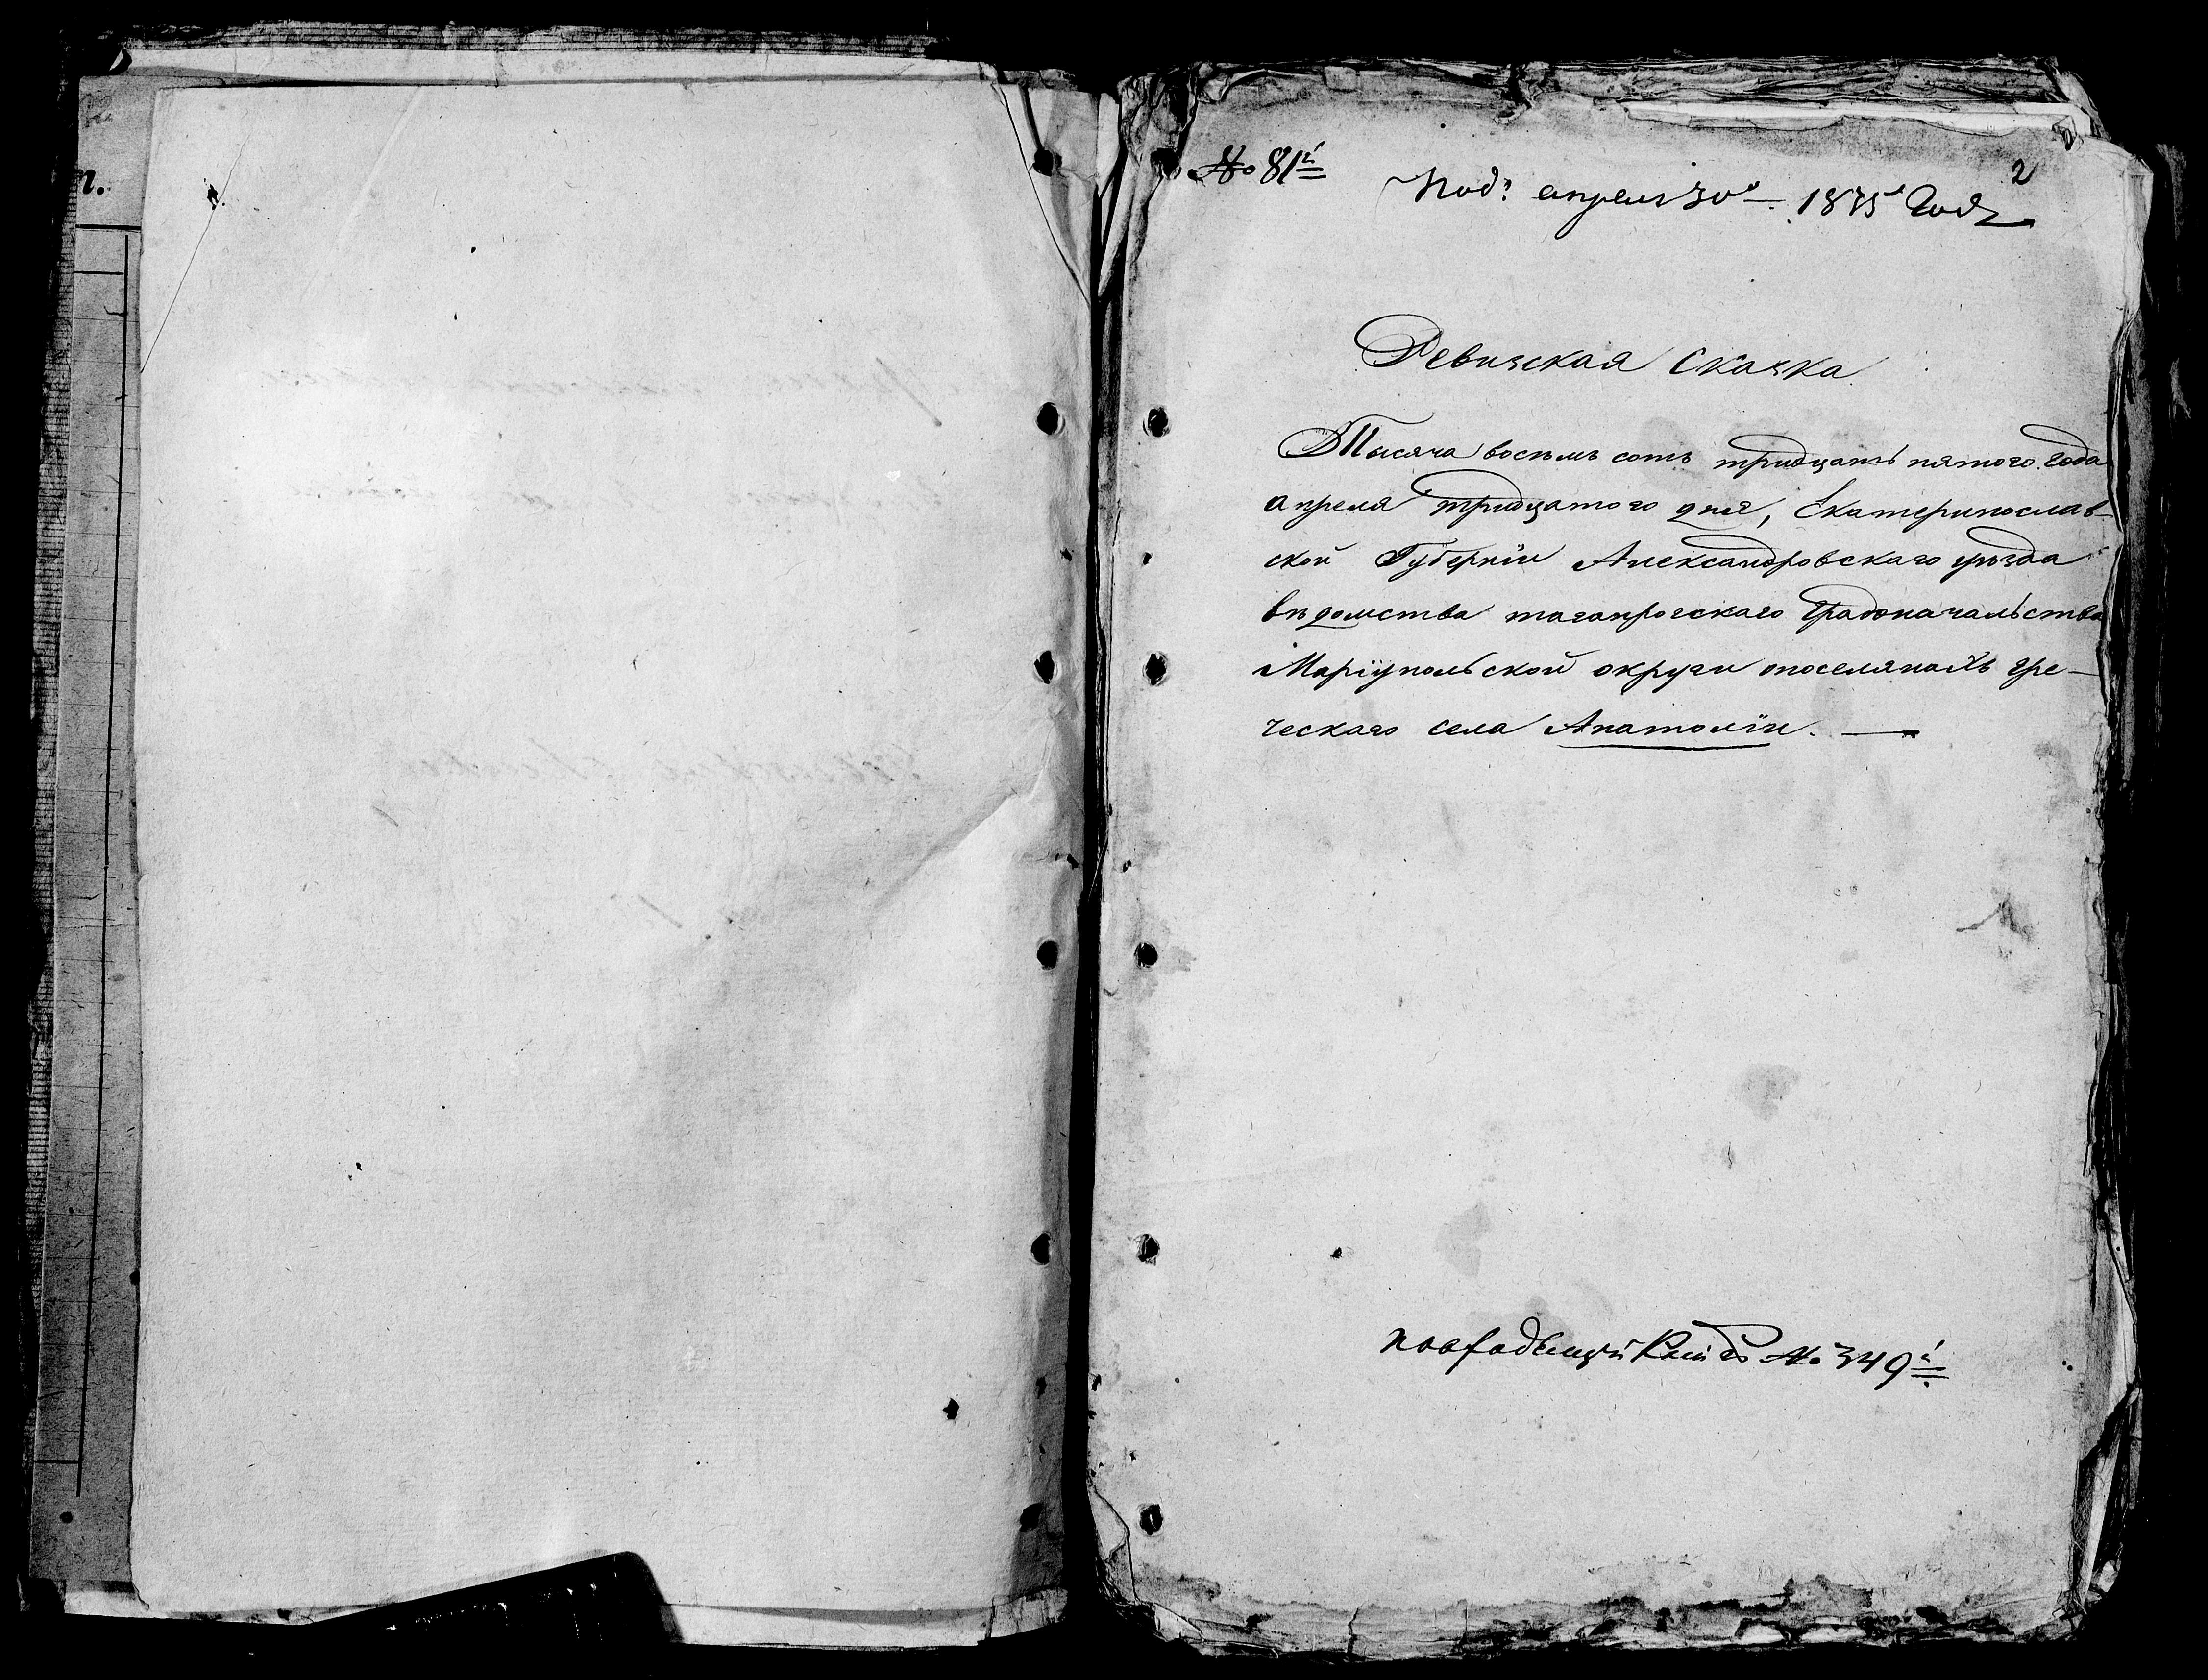 п.
№ 81й
2
Под: апреля 30го 1835 Года
Ревизская Сказка
Тысяча восемь сотъ тридцать пятого года
апреля тридцатого дня, Екатеринослав-
ской Губерніи Александровскаго уѣзда
вѣдомства таганрогскаго Градоначальства
Маріупольской округи поселянахъ гре-
ческаго села Анатоліи.
№ 349й